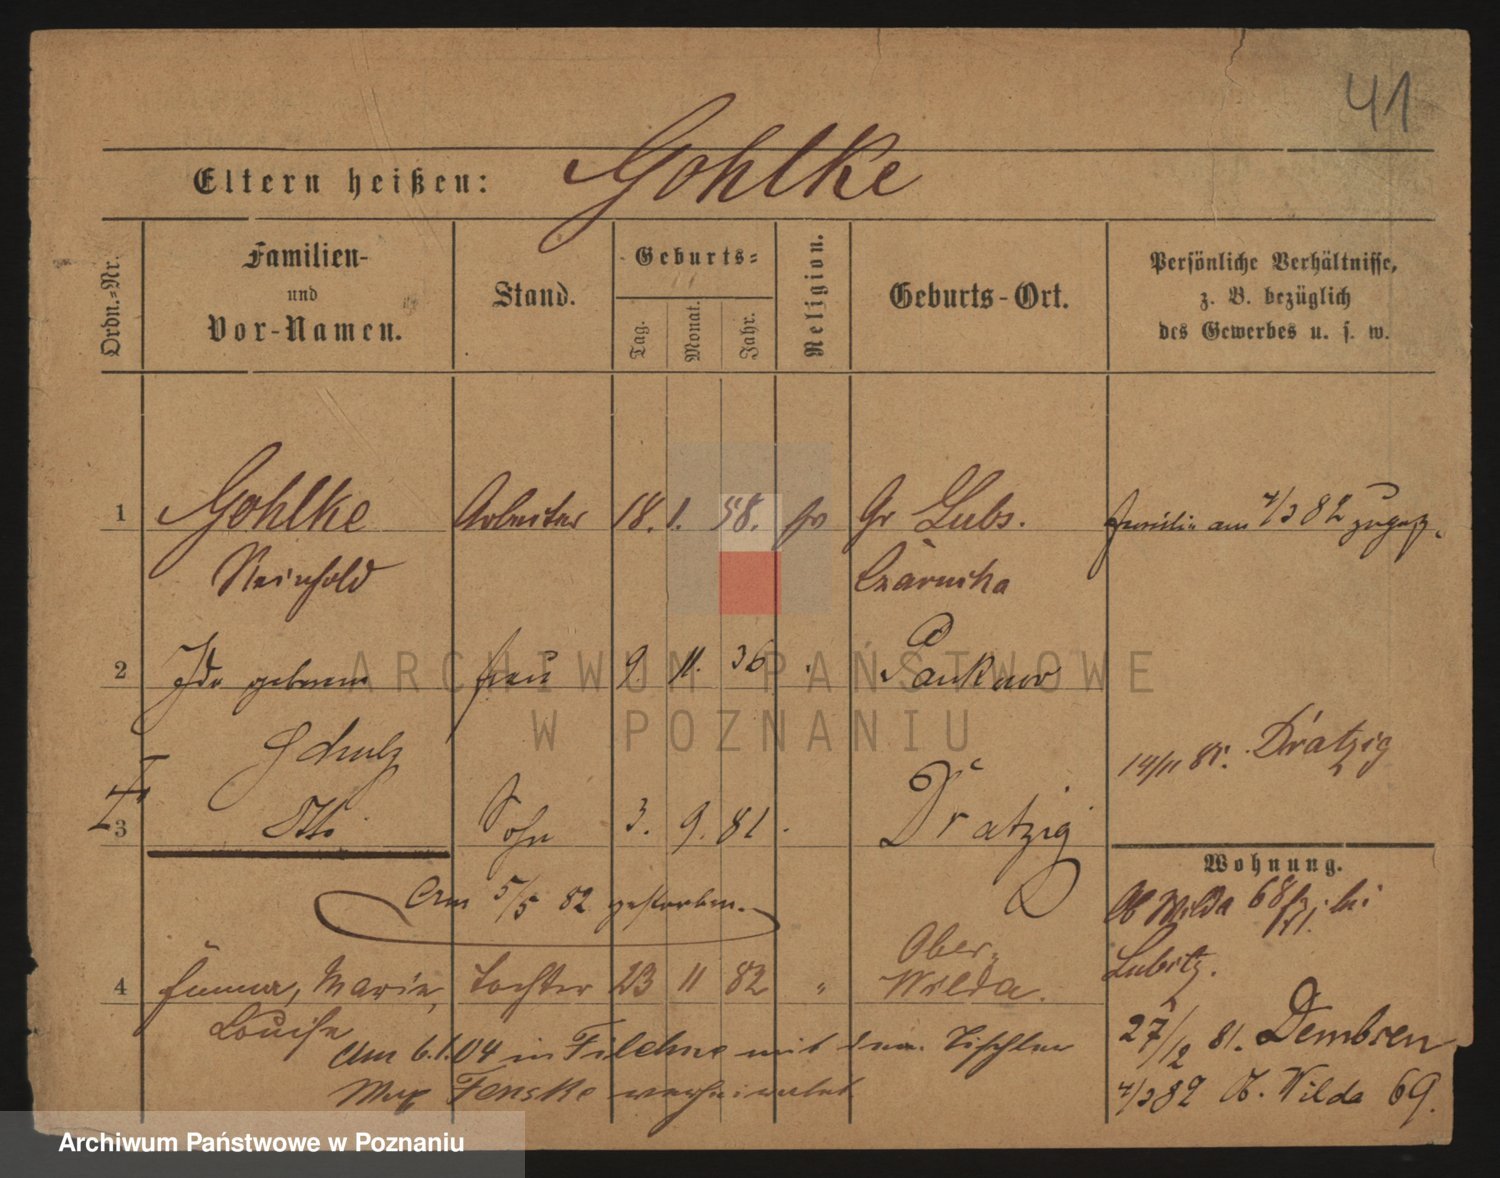 41
Eltern heißen: Gohlke
Ordn.-Nr.
Familien-
und
Vor-Namen.
Stand.
Geburts-
Tag.
Monat.
Jahr.
Religion.
Geburts-Ort.
Persönliche Verhältnisse,
z. B. bezüglich
des Gewerbes u. s. w.
1 Gohlke Arbeiter 18. 1. 58. ev Gr Lubs. Familie am 4/3 82 zugez.
Reinhold Czarnika
2 Ida geborene Frau 9. 11. 36
Schulz
14/11 81. Dratzig
3 Otto Sohn 3. 9. 81. Dratzig
Wohnung.
Am 5/5 82 gestorben.
Ob Wilda 68 bei
Lubitz.
4 Emma, Marie, Tochter 23 11 82 " Ober-
Wilda.
Louise
27/12 81. Dembsen
Am 6.1.04 in Filehne mit dem Tischler
Max Fenske verheiratet
4/3 82 O. Wilda 69.
ARCHIWUM PAŃSTWOWE
W POZNANIU
Archiwum Państwowe w Poznaniu